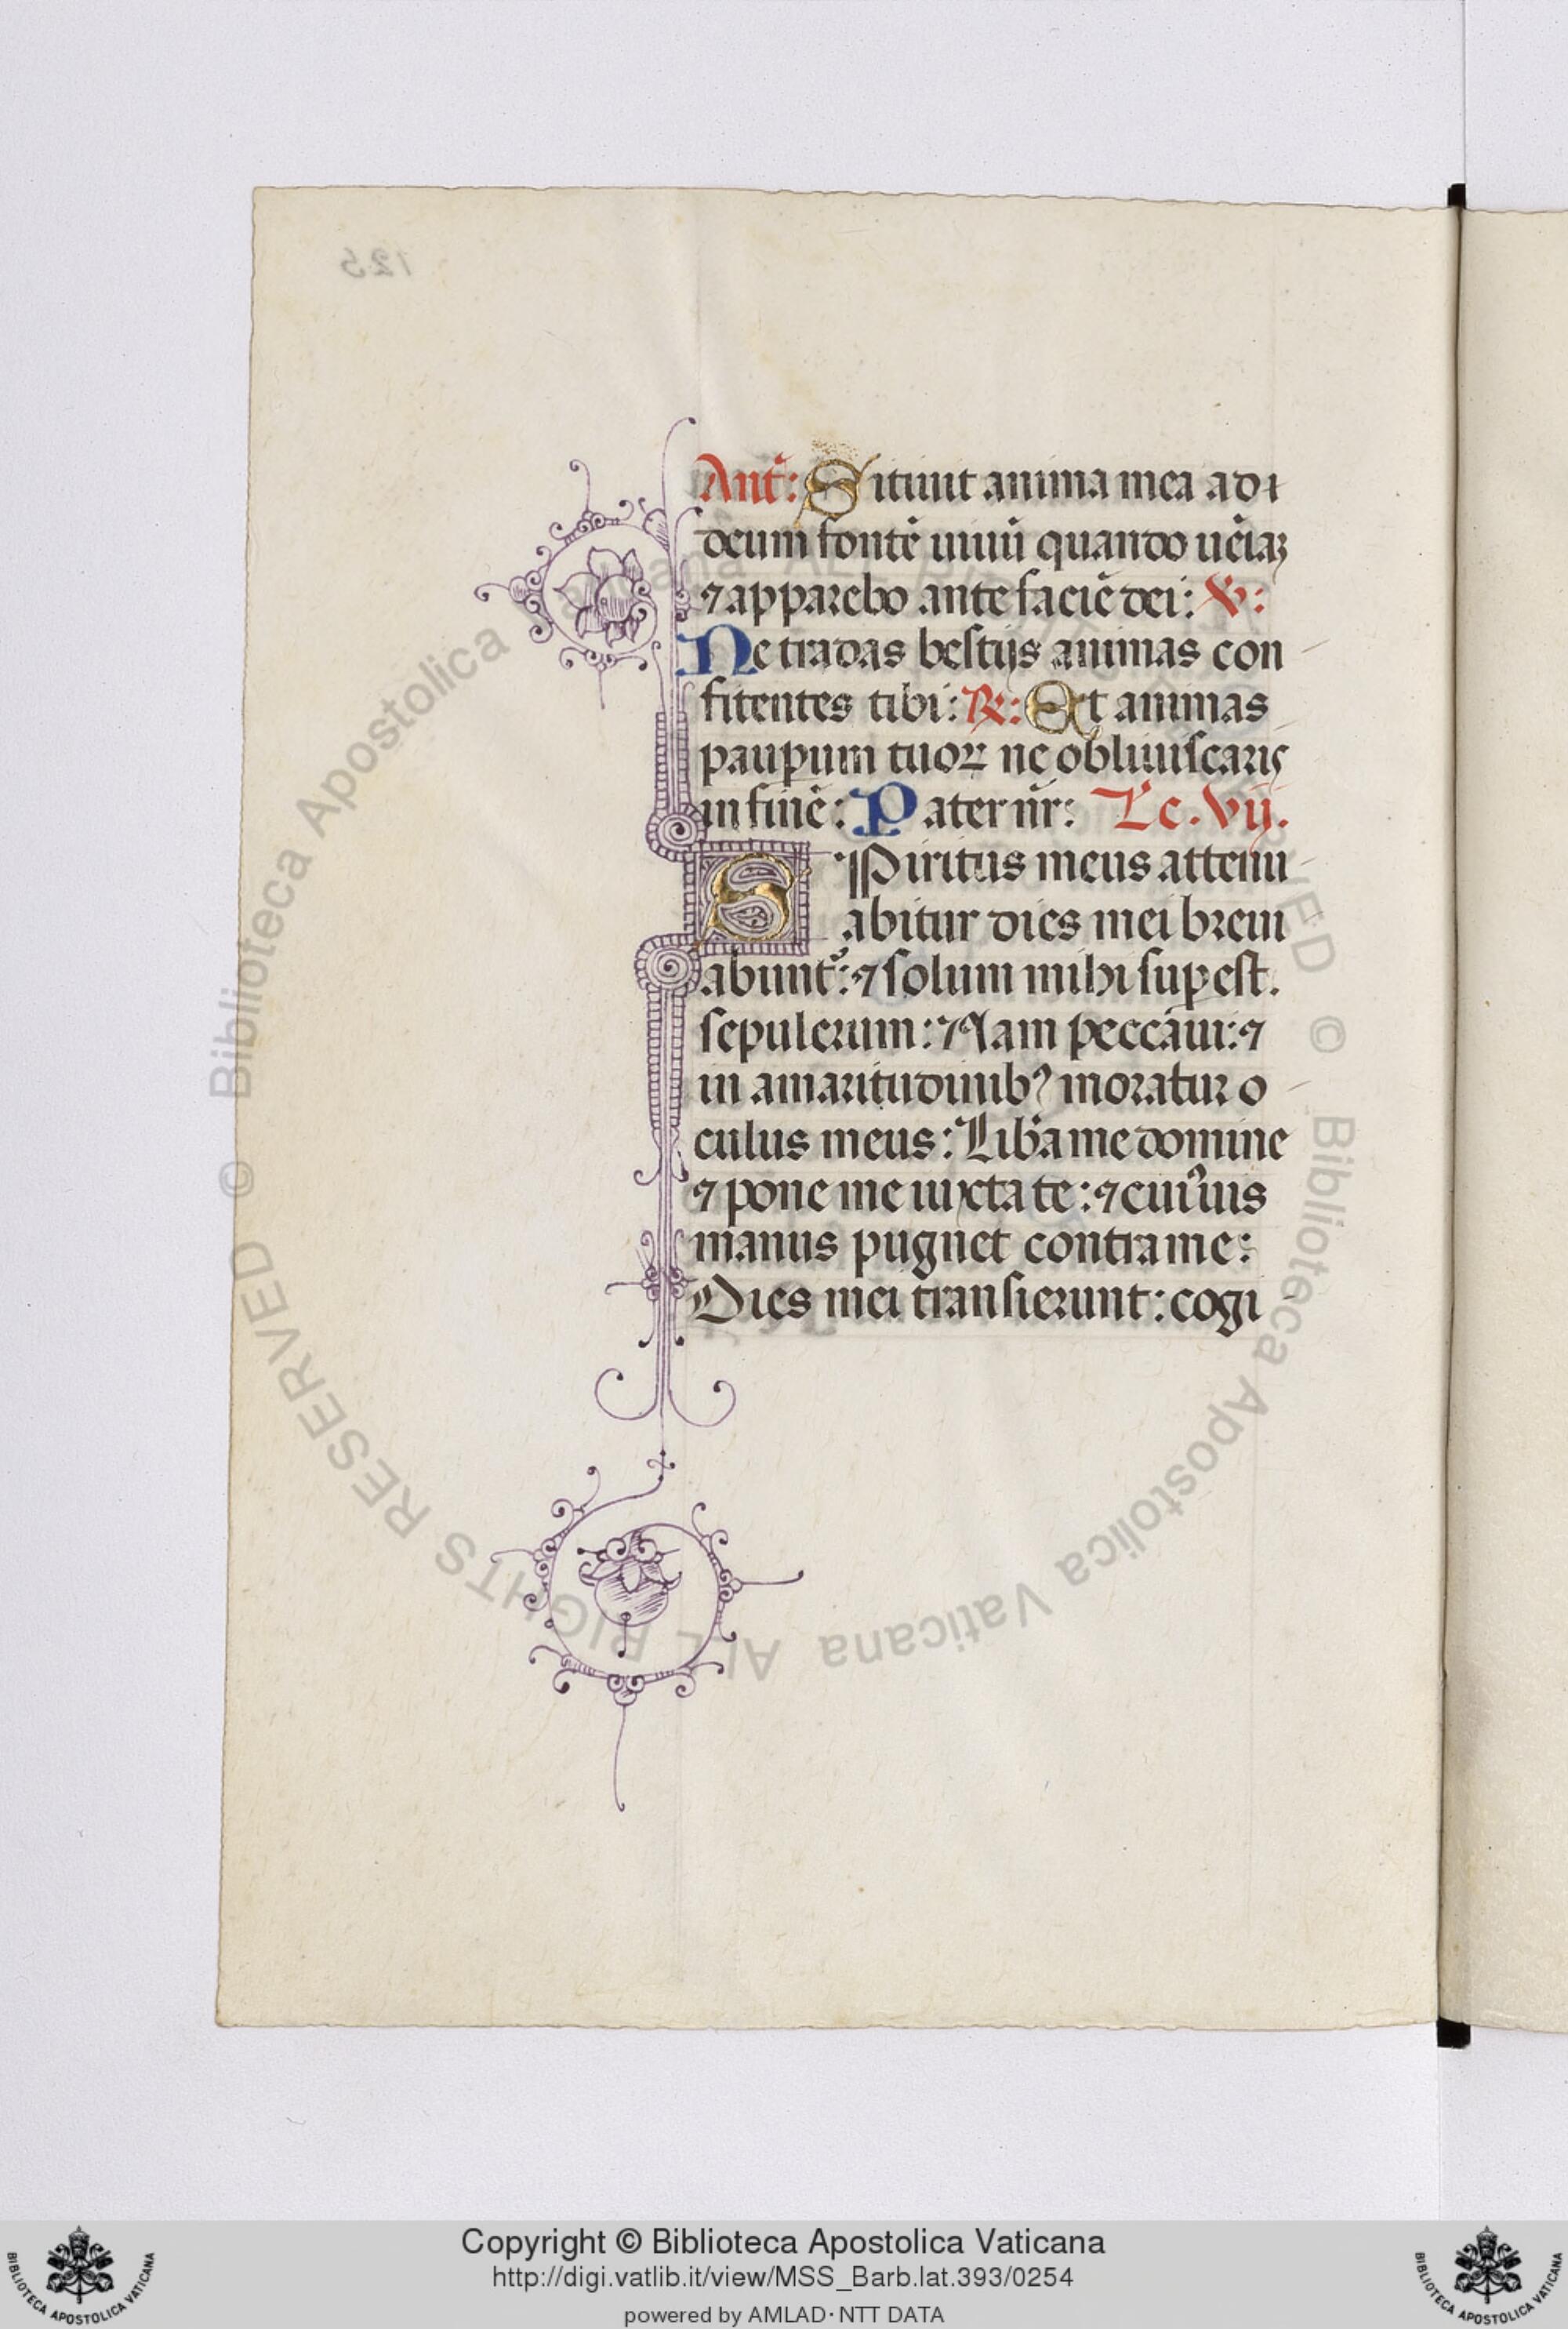 Ant̄: Sitiuit anima mea ad
deum fontē uiuū quando uēiaʒ
⁊ apparebo ante faciē dei: ℣:
Ne tradas bestijs animas con
fitentes tibi: ℞: Et animas
paup̱um tuoꝝ ne obliuiscaris
in finē: Pater nr̄: Lc. vij.
SPiritus meus attenu
abitur dies mei breui
abunt᷑: ⁊ solum mihi sup̱est.
sepulcrum: Nam peccaui: ⁊
in amaritudinibꝰ moratur o
culus meus: Lib̄a me domine
⁊ pone me iuxta te: ⁊ cuiꝰuis
manus pugnet contra me:
Dies mei transierunt: cogi
125
© Biblioteca Apostolica Vaticana ALL RIGHTS RESERVED
© Biblioteca Apostolica Vaticana ALL RIGHTS RESERVED
Copyright © Biblioteca Apostolica Vaticana
http://digi.vatlib.it/view/MSS_Barb.lat.393/0254
powered by AMLAD · NTT DATA
BIBLIOTECA APOSTOLICA VATICANA
BIBLIOTECA APOSTOLICA VATICANA